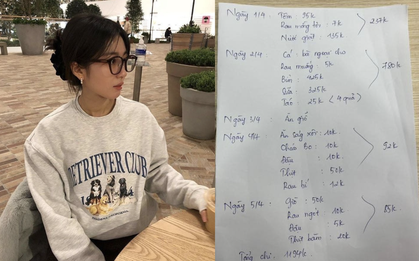 RETRIEVER CLUB
Ngày 1/4 : Tôm : 95k
Rau mống tơi : 7k
Nước giặt : 135k
237k
Ngày 2/4 : Cá : bà ngoại cho
Rau muống 5k
Bún :
Táo : 25k (4 quả)
780k
Ngày 3/4 : Ăn ghé
Ngày 4/4 : Ăn sáng xôi : 10k
Cháo Bo : 10k
Đậu : 10k
Thịt : 50k
Rau bí : 12k
92k
Ngày 5/4 : Giò : 50k
Rau ngót : 10k
Đậu : 5k
Thịt băm : 20k
85k
Tổng chi : 1194k